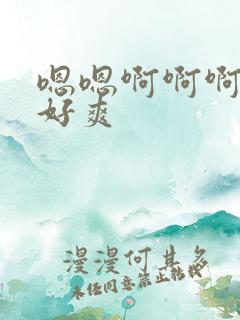 嗯嗯啊啊啊
好爽
漫漫何其多
未经同意禁止转载